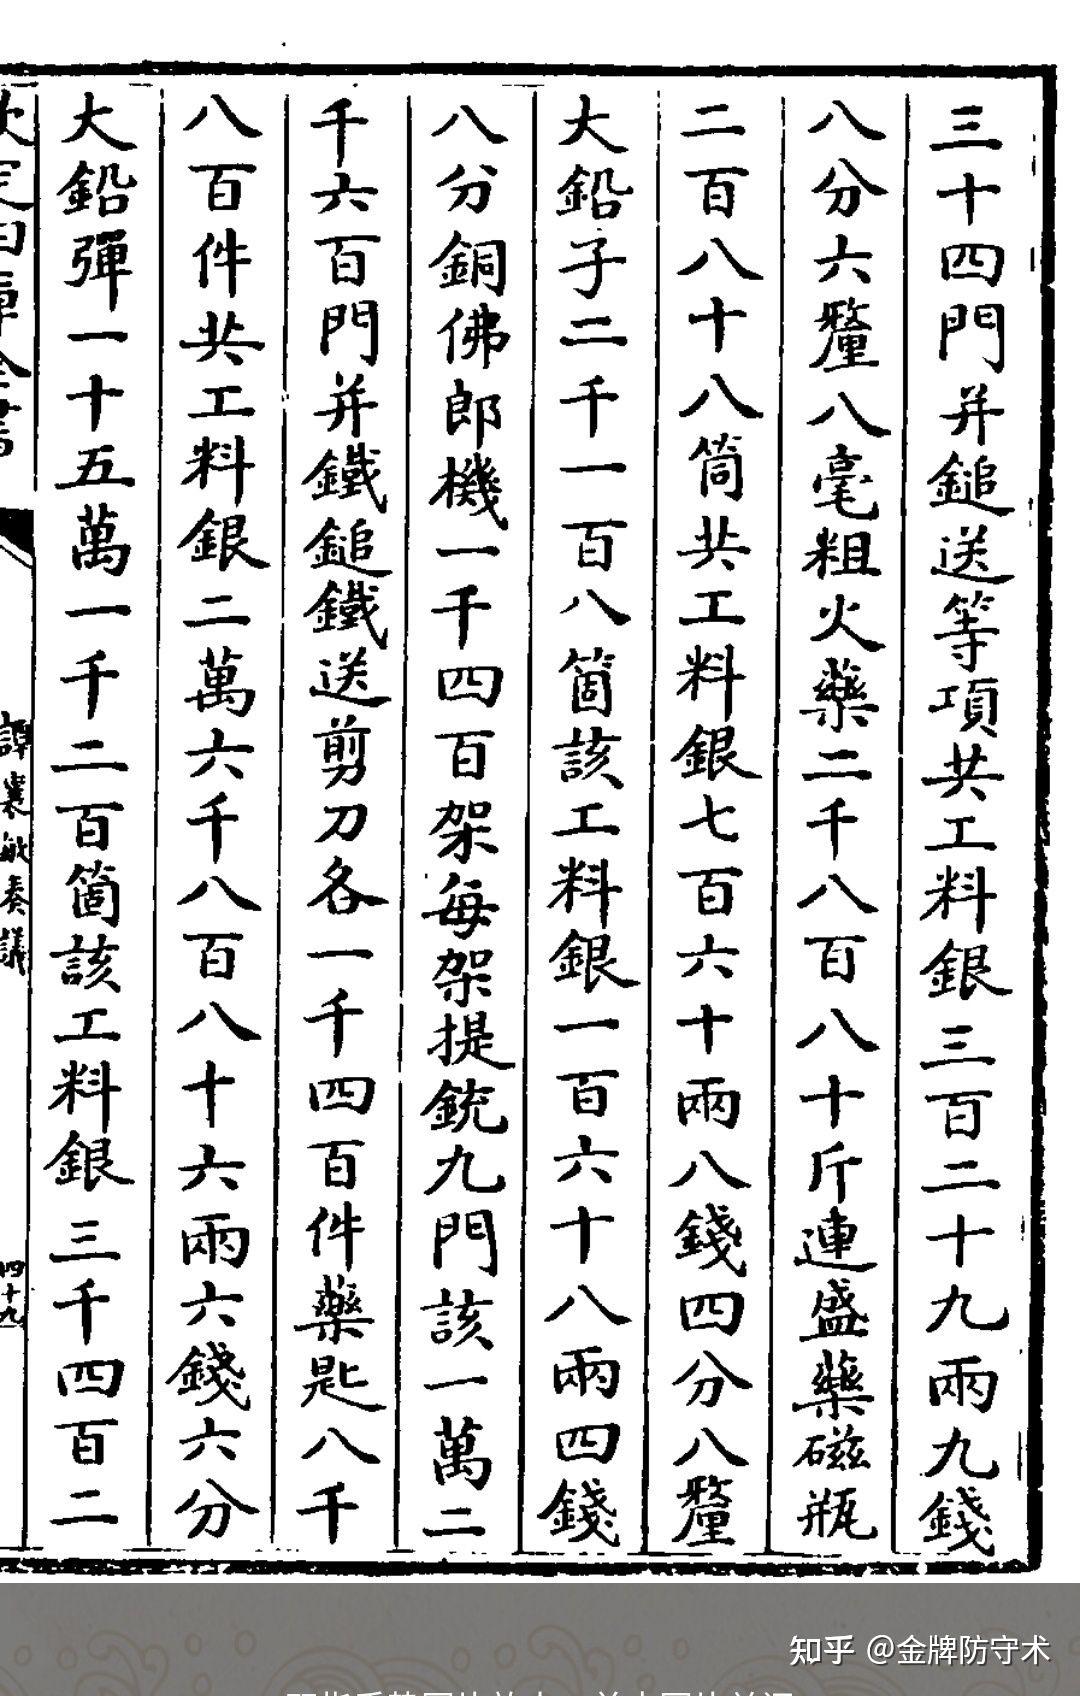 三十四門并鎚送等項共工料銀三百二十九兩九錢
八分六釐八毫粗火藥二千八百八十斤連盛藥磁瓶
二百八十八筒共工料銀七百六十兩八錢四分八釐
大鉛子二千一百八箇該工料銀一百六十八兩四錢
八分銅佛郎機一千四百架每架提銃九門該一萬二
千六百門并鐵鎚鐵送剪刀各一千四百件藥匙八千
八百件共工料銀二萬六千八百八十六兩六錢六分
大鉛彈一十五萬一千二百箇該工料銀三千四百二
譚襄敏奏議
四十九
知乎 @金牌防守术